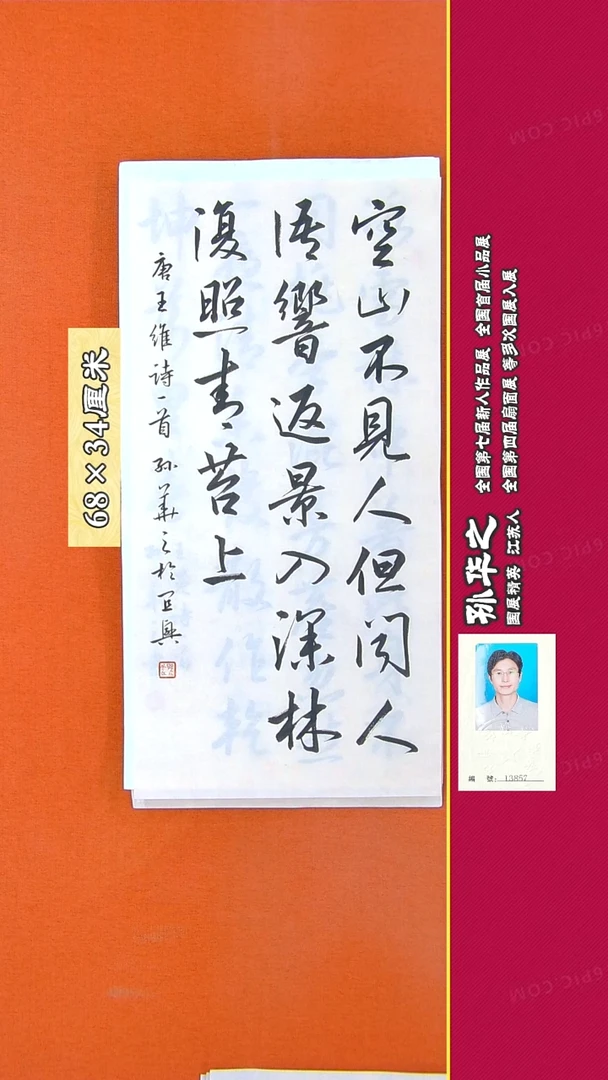 空山不見人但闻人
语響返景入深林
復照青苔上
唐王維诗一首 孙華之於宜興
68×34厘米
孙华之
国展精英 江苏人
全国第七届新人作品展 全国首届小品展
全国第四届扇面展 等多次国展入展
编号: 13857